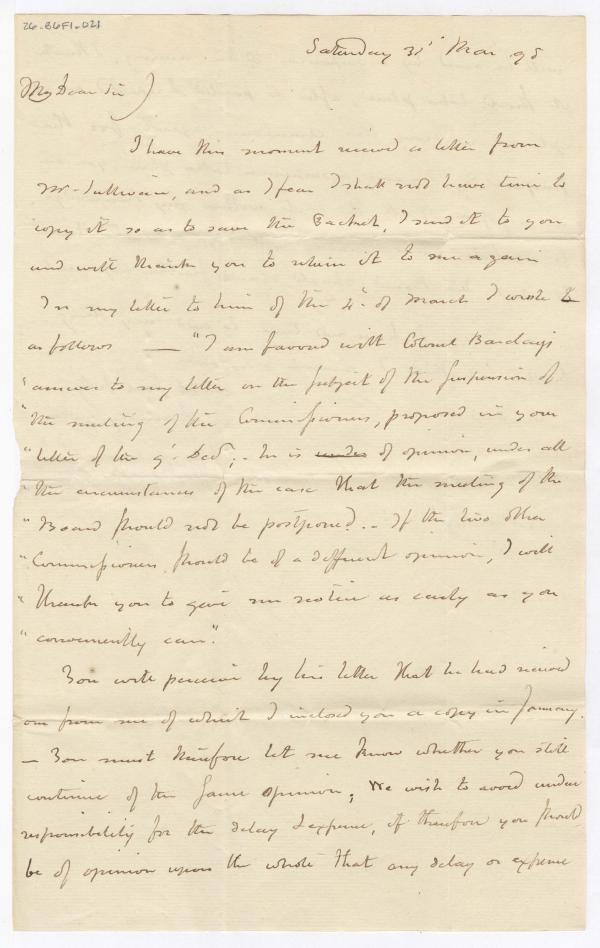 26.B6F1.021
Saturday 31st Mar 98
My Dear Sir)
I have this moment received a letter from
Mr. Sullivan, and as I fear I shall not have time to
copy it so as to save the Packet, I send it to you
and will thank you to return it to me again
In my letter to him of the 4th of March I wrote
as follows — "I am favored with Colonel Barclay's
"answer to my letter on the subject of the suspension of
"the meeting of the Commissioners, proposed in your
"letter of the 9th Decr; - He is under of opinion, under all
"the circumstances of the case that the meeting of the
"Board should not be postponed. - If the two other
"Commissioners should be of a different opinion, I will
"thank you to give me notice as early as you
"conveniently can".
You will perceive by his letter that he had received
one from me of which I inclosed you a copy in January.
— You must therefore let me know whether you still
continue of the same opinion; We wish to avoid undue
responsibility for the delay & expense, if therefore you should
be of opinion upon the whole that any delay or expense